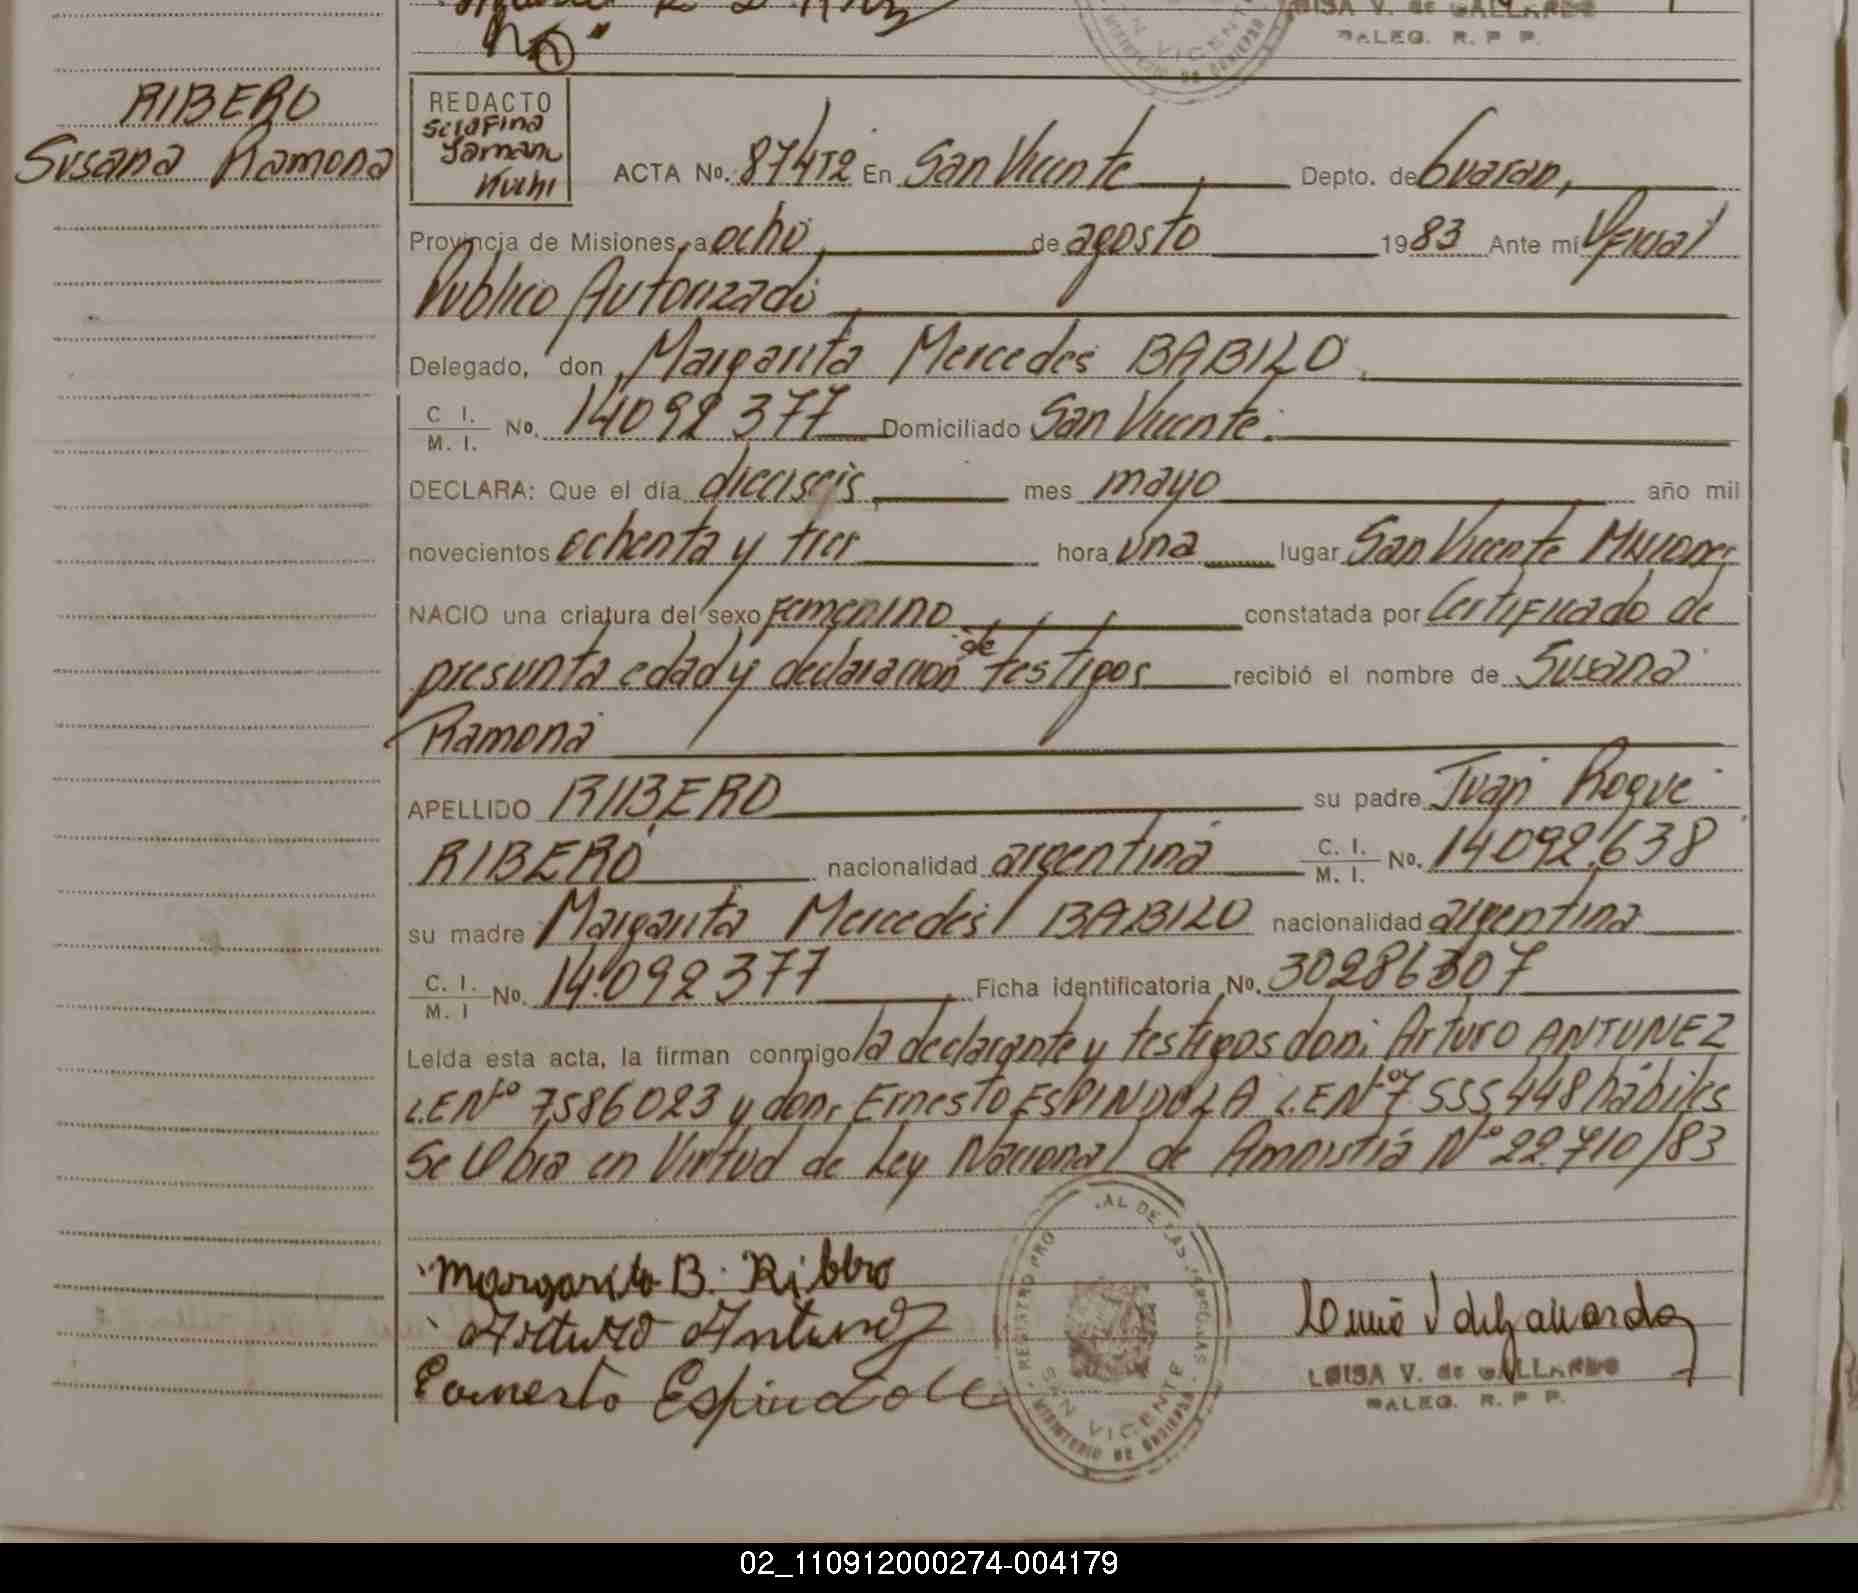 LUISA V. de GALLARDO
DALEG. R. P P.
RIBERO
Susana Ramona
REDACTO
ACTA No. 874T2 En San Vicente Depto. de Guaraní
Provincia de Misiones, a ocho de agosto 1983 Ante mí Oficial
Publico Autorizado
Delegado, don Margarita Mercedes BABILO
C I. / M. I. No. 14092377 Domiciliado San Vicente.
DECLARA: Que el día dieciseis mes mayo año mil
novecientos ochenta y tres hora una lugar San Vicente Misiones
NACIO una criatura del sexo femenino constatada por Certificado de
presunta edad y declaracion de testigos recibió el nombre de Susana
Ramona
APELLIDO RIBERO su padre Juan Roque
RIBERO nacionalidad argentina C. I. / M. I. No. 14092.638
su madre Margarita Mercedes BABILO nacionalidad argentina
C. I. / M. I No. 14.092377 Ficha identificatoria No. 30286307
Leída esta acta, la firman conmigo la declarante y testigos don: Arturo ANTUNEZ
L.E Nº 7586023 y don: Ernesto ESPINDOLA L.E Nº 7555448 hábiles
Se Labra en Virtud de Ley Nacional de Amnistía Nº 22.710/83
Margarita B. Ribero
Arturo Antunez
Ernesto Espindola
REGISTRO PRO AL DE LAS PERSONAS
SAN VICENTE
MINISTERIO DE GOBIERNO
LUISA V. de GALLARDO
DALEG. R. P P.
02_110912000274-004179